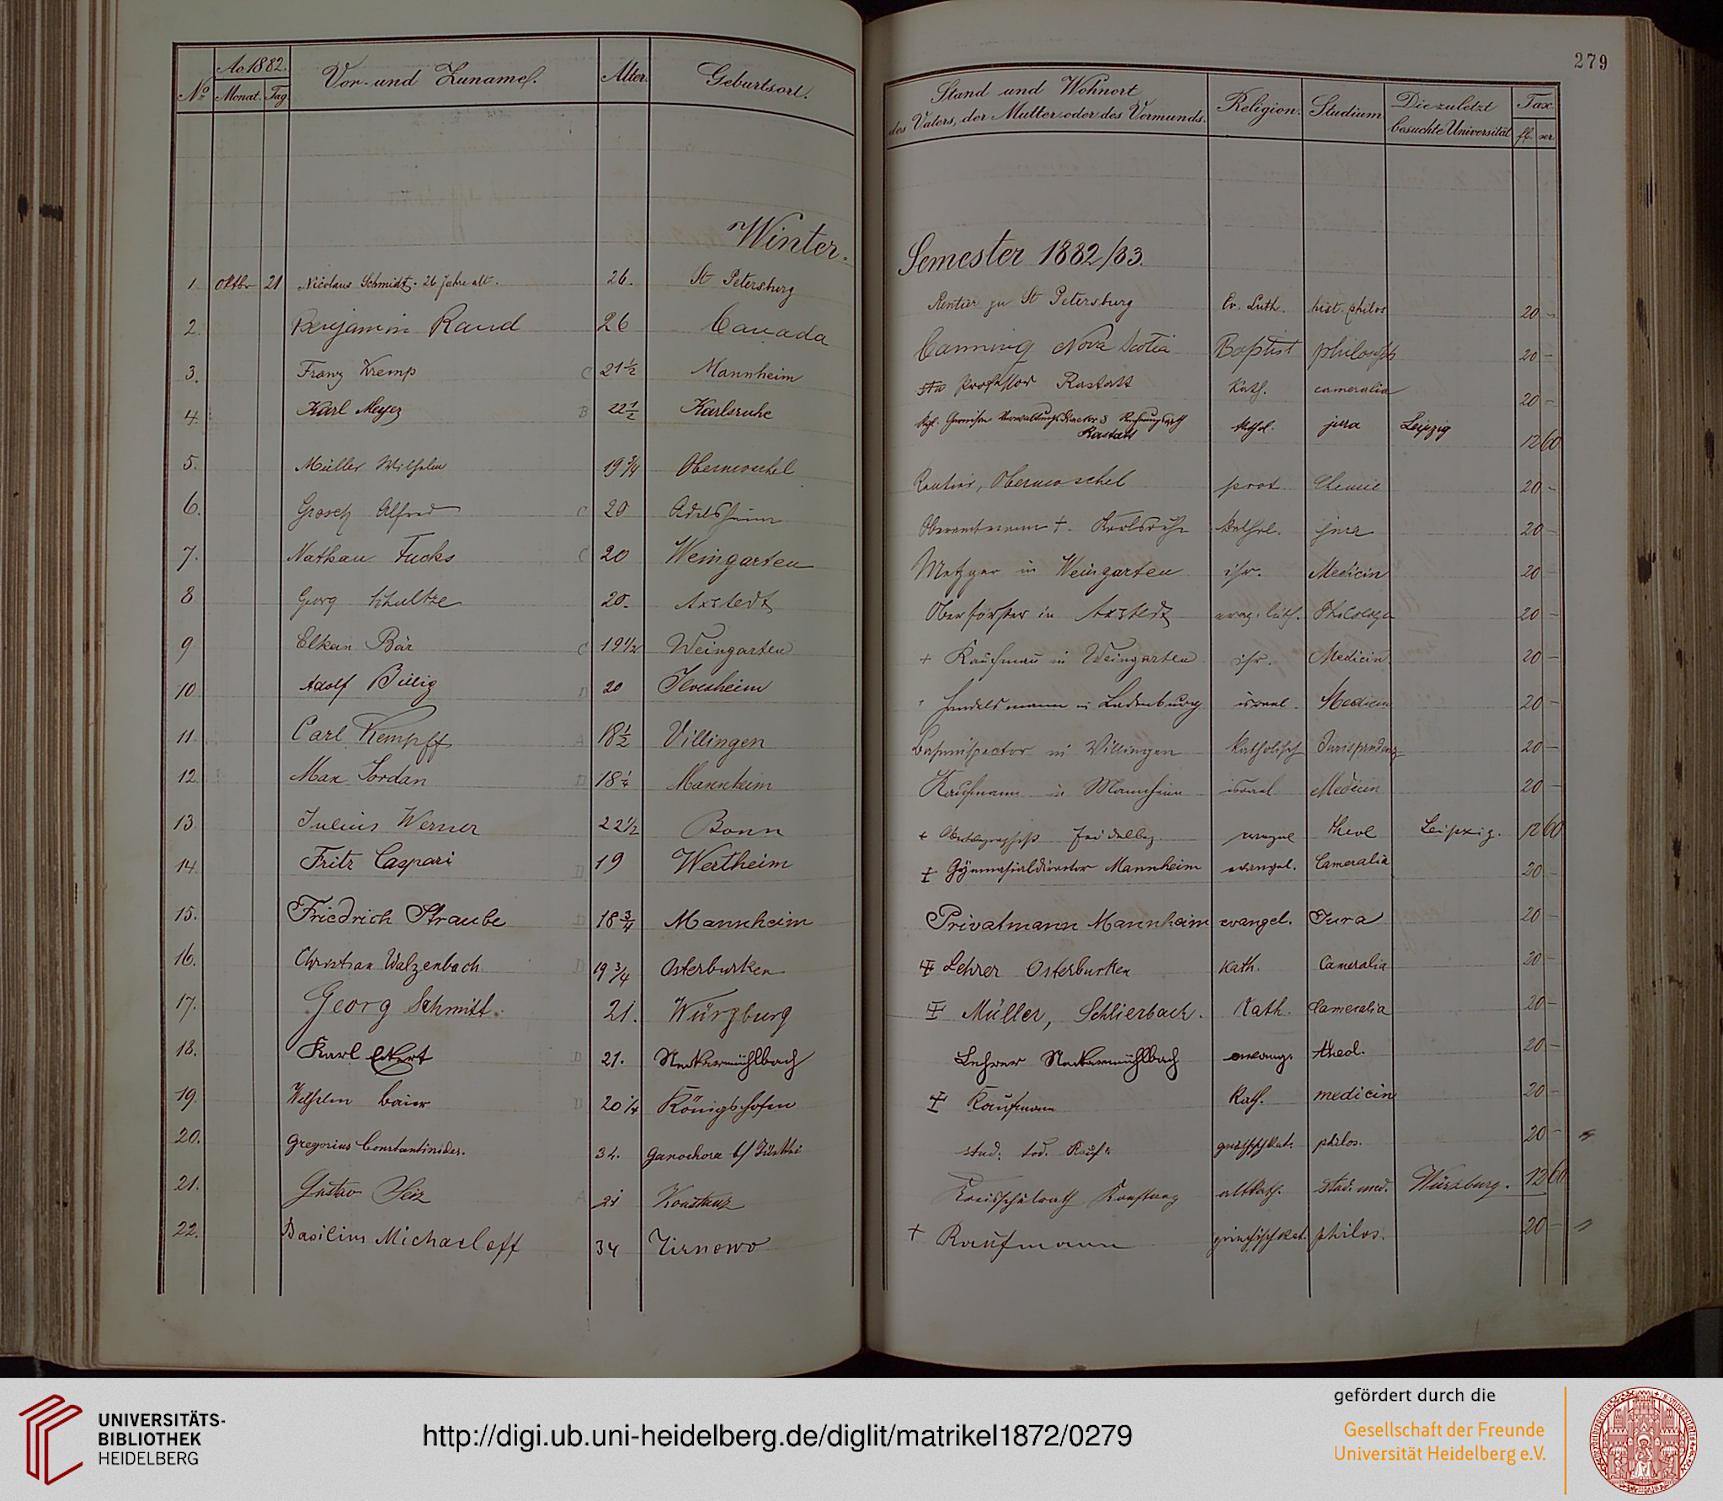 279
Ao 1882.
No Monat. Tag. Vor- und Zuname. Alter. Geburtsort. Stand und Wohnort des Vaters, der Mutter oder des Vormunds. Religion. Studium Die zuletzt besuchte Universität Tax. fl. xr.
Winter. Semester 1882/83.
1. Oktbr 21 Nicolaus Schmidt. 26 Jahre alt. 26. St Petersburg Rentier zu St Petersburg Ev. Luth. hist. philos 20 –
2. Benjamin Rand 26 Canada Canning Nova Scotia Baptist philosoph 20 –
3. Franz Kremp C 21 1/2 Mannheim Professor Rastatt Kath. cameralia 20 –
4. Karl Meyer B 22 1/2 Karlsruhe Rastatt jura Leipzig 12 60
5. Müller Wilhelm 19 3/4 Obermoschel Rentier, Obermoschel prot. Chemie 20 –
6. Grosch Alfred C 20 Adelsheim Oberamtmann †. Karlsruhe kathol. jura 20 –
7. Nathan Fuchs C 20 Weingarten Metzger in Weingarten isr. Medicin 20 –
8 Georg Schultze 20. Axstedt Oberförster in Axstedt evang. luth. Philologie 20 –
9 Elkan Bär C 19 1/2 Weingarten + Kaufmann in Weingarten isr. Medicin 20 –
10 Adolf Billig D 20 Ilvesheim Handelsmann in Ladenburg israel. Medicin 20 –
11 Carl Kempff A 18 1/2 Villingen Bahninspector in Villingen katholisch Jurisprudenz 20 –
12. Max Jordan D 18 1/4 Mannheim Kaufmann in Mannheim israel Medicin 20 –
13 Julius Werner 22 1/2 Bonn + evangel theol Leipzig. 12 60
14. Fritz Caspari D 19 Wertheim ‡ Gymnasialdirector Mannheim evangel. Cameralia 20 –
15. Friedrich Straube D 18 3/4 Mannheim Privatmann Mannheim evangel. Jura 20 –
16. Christian Walzenbach D 19 3/4 Osterburken ‡ Lehrer Osterburken Kath. Cameralia 20 –
17. Georg Schmitt. 21. Würzburg ‡ Müller, Schlierbach. Kath. Cameralia 20 –
18. Karl Eckert D 21. Neckarmühlbach Lehrer Neckarmühlbach evang. theol. 20 –
19. Wilhelm Baier D 20 1/4 Königshofen ‡ Kaufmann Kath. medicin 20 –
20. Gregorius Constantinides. 34. Ganochora philos. 20 – "
21. Gustav A 21 Konstanz Kreisschulrath Konstanz altkath. stud. med. Würzburg. 12 60
22. Basilius Michaeloff 34 Tirnowo + Kaufmann griechisch kat. philos. 20 – "
UNIVERSITÄTS-
BIBLIOTHEK
HEIDELBERG
http://digi.ub.uni-heidelberg.de/diglit/matrikel1872/0279
gefördert durch die
Gesellschaft der Freunde
Universität Heidelberg e.V.